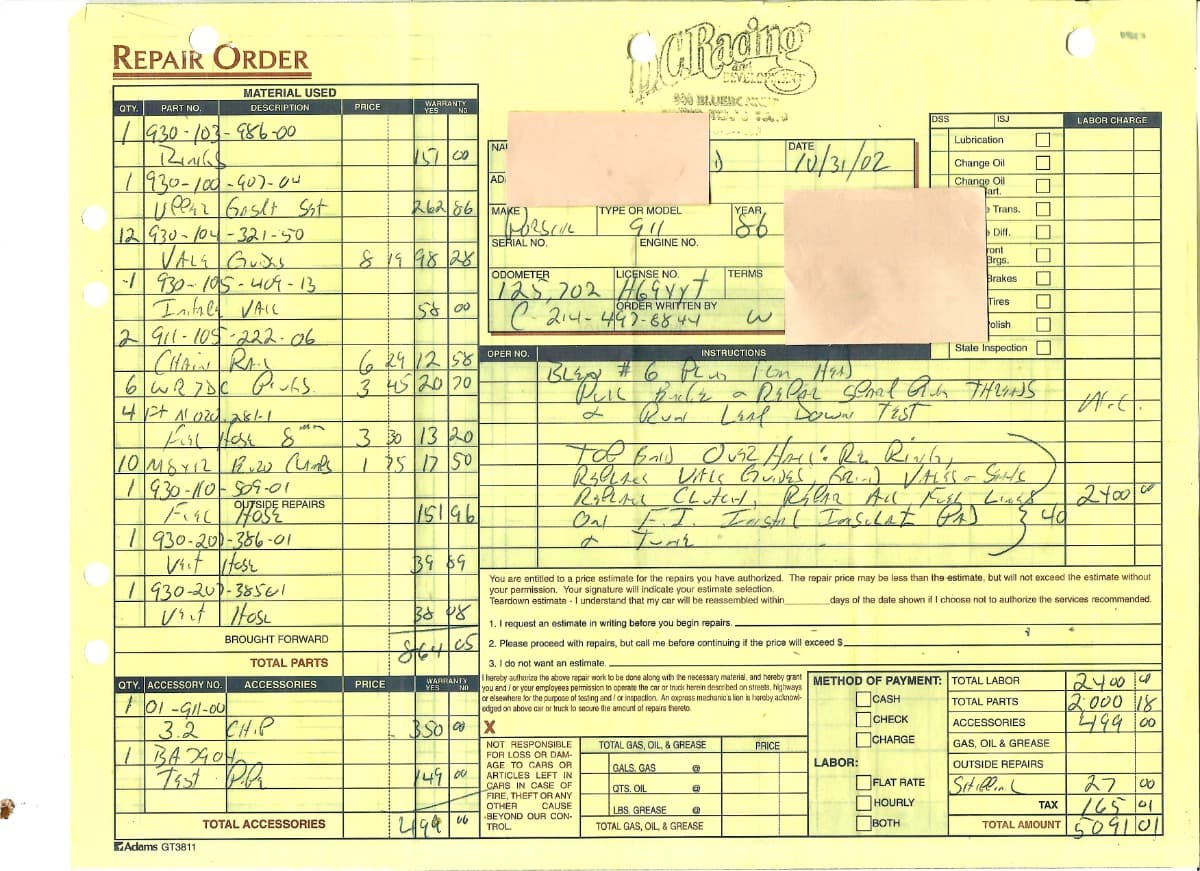 REPAIR ORDER
RACING
and
DEVELOPMENT
MATERIAL USED
QTY. PART NO. DESCRIPTION PRICE WARRANTY YES NO
1 930-103-986-00
Rings 151 00
1 930-100-907-04
Upper Gaskt Set 262 86
12 930-104-321-50
Valve Guides 8 19 98 28
1 930-105-409-13
Intake Valve 58 00
2 911-105-222-06
Chain Rail 6 29 12 58
6 WR7DC Plugs 3 45 20 70
4 Ft N020.281-1
Fuel Hose 8mm 3 30 13 20
10 M8x12 Clamps 1 75 17 50
1 930-110-509-01
OUTSIDE REPAIRS
Fuel Hose 151 96
1 930-207-386-01
Vent Hose 39 89
1 930-207-38501
Vent Hose 38 08
BROUGHT FORWARD
TOTAL PARTS 864 05
QTY. ACCESSORY NO. ACCESSORIES PRICE WARRANTY YES NO
1 01-911-00
3.2 CHIP 350 00
1 BA7904
Test Pipe 149 00
TOTAL ACCESSORIES 499 00
Adams GT3811
NA
DATE
10/31/02
AD
MAKE TYPE OR MODEL YEAR
Porsche 911 86
SERIAL NO. ENGINE NO.
ODOMETER LICENSE NO. TERMS
125,702 H69YYT
ORDER WRITTEN BY
C-214-497-8844 W
DSS ISJ LABOR CHARGE
Lubrication
Change Oil
Change Oil
art.
Trans.
Diff.
ront
Brgs.
Brakes
Tires
olish
State Inspection
OPER NO. INSTRUCTIONS
Blew #6 Plug From Head
Pull Engine & Repair Spark Plug Threads N.C.
& Run Leak Down Test
Top End Over Haul: Re Ring,
Replace Valve Guides, Grind Valves & Seats
Replace Clutch, Repair All Fuel Lines 2400 00
On F.I. Install Insulat Pad 40
& Tune
You are entitled to a price estimate for the repairs you have authorized. The repair price may be less than the estimate, but will not exceed the estimate without
your permission. Your signature will indicate your estimate selection.
Teardown estimate - I understand that my car will be reassembled within days of the date shown if I choose not to authorize the services recommended.
1. I request an estimate in writing before you begin repairs.
2. Please proceed with repairs, but call me before continuing if the price will exceed $
3. I do not want an estimate.
I hereby authorize the above repair work to be done along with the necessary material, and hereby grant
you and / or your employees permission to operate the car or truck herein described on streets, highways
or elsewhere for the purpose of testing and / or inspection. An express mechanic's lien is hereby acknowl-
edged on above car or truck to secure the amount of repairs thereto.
X
NOT RESPONSIBLE
FOR LOSS OR DAM-
AGE TO CARS OR
ARTICLES LEFT IN
CARS IN CASE OF
FIRE, THEFT OR ANY
OTHER CAUSE
BEYOND OUR CON-
TROL.
TOTAL GAS, OIL, & GREASE PRICE
GALS. GAS @
QTS. OIL @
LBS. GREASE @
TOTAL GAS, OIL, & GREASE
METHOD OF PAYMENT:
CASH
CHECK
CHARGE
LABOR:
FLAT RATE
HOURLY
BOTH
TOTAL LABOR 2400 00
TOTAL PARTS 2000 18
ACCESSORIES 499 00
GAS, OIL & GREASE
OUTSIDE REPAIRS
27 00
TAX 165 01
TOTAL AMOUNT 5091 01